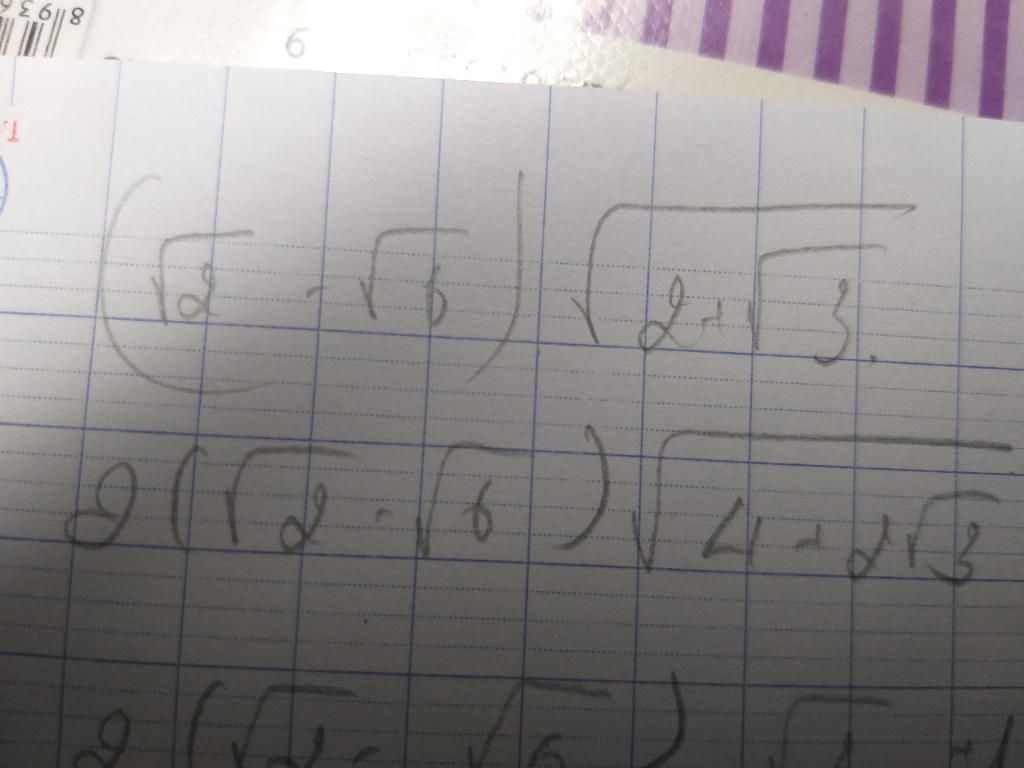 8 9 3 6
6
(√2 - √6) √(2+√3).
2(√2 - √6) √(4+2√3
2(√2 - √6)